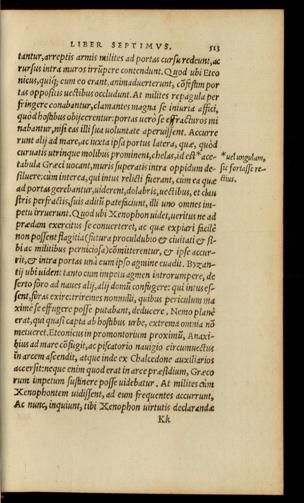 LIBER SEPTIMVS. 513
tantur, arreptis armis milites ad portas cursu redeunt, ac
rursus intra muros irrūpere contendunt. Quod ubi Eteo
nicus, quiq; cum eo erant, animaduerterunt, cōfestim por
tas oppositis uectibus occludunt. At milites repagula per
fringere conabantur, clamantes magna se iniuria affici,
quòd hostibus obijcerentur: portas uerò se effracturos mi
nabantur, nisi eas illi sua uoluntate aperuissent. Accurre
runt alij ad mare, ac iuxta ipsa portus latera, quæ, quòd
curuatis utrinque molibus prominent, chelas, id est * ace-
tabula Græci uocant, muris superatis intra oppidum de-
siluere: cùm interea, qui intus relicti fuerant, cùm ea quæ
ad portas gerebantur, uiderent, dolabris, uectibus, et clau
stris perfractis, suis aditū patefaciunt, illi uno omnes im-
petu irruerunt. Quod ubi Xenophon uidet, ueritus ne ad
prædam exercitus se conuerteret, ac quæ expiari facilè
non possent flagitia (futura proculdubio & ciuitati & si-
bi ac militibus perniciosa) cōmitterentur, & ipse accur-
rit, & intra portas unà cum ipso agmine euadit. Byzan-
tij ubi uident tanto cum impetu agmen introrumpere, de
serto foro ad naues alij, alij domū confugere: qui intus es-
sent, foras exire: triremes nonnulli, quibus periculum ma
ximè se effugere posse putabant, deducere. Nemo planè
erat, qui quasi capta ab hostibus urbe, extrema omnia nō
metueret. Eteonicus in promontorium proximū, Anaxi-
bius ad mare cōfugit, ac piscatorio nauigio circumuectus
in arcem ascendit, atque inde ex Chalcedone auxiliarios
accersit: neque enim quod erat in arce præsidium, Græco
rum impetum sustinere posse uidebatur. At milites cùm
Xenophontem uidissent, ad eum frequentes accurrunt,
Ac nunc, inquiunt, tibi Xenophon uirtutis declarandæ
Kk
* uel ungulam,
sic fortasse re-
ctius.